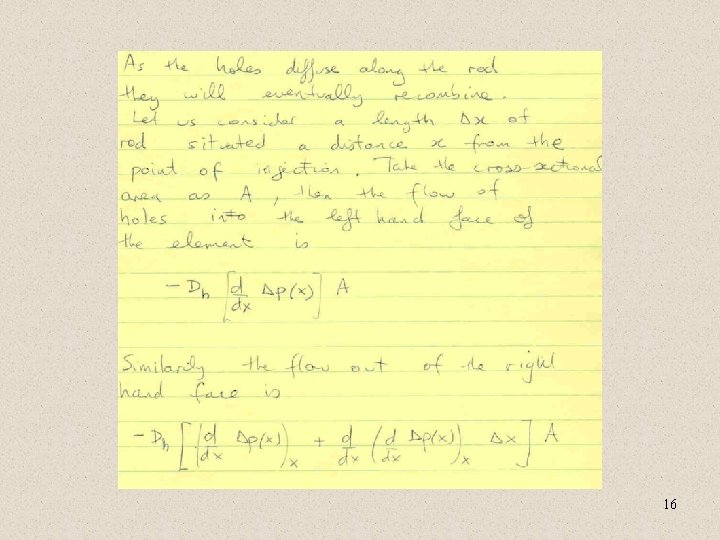 As the holes diffuse along the rod
they will eventually recombine.
Let us consider a length Δx of
rod situated a distance x from the
point of injection. Take the cross-sectional
area as A, then the flow of
holes into the left hand face of
the element is
- D_h [d/dx Δp(x)] A
Similarily the flow out of the right
hand face is
- D_h [(d/dx Δp(x))_x + d/dx (d/dx Δp(x))_x Δx] A
16